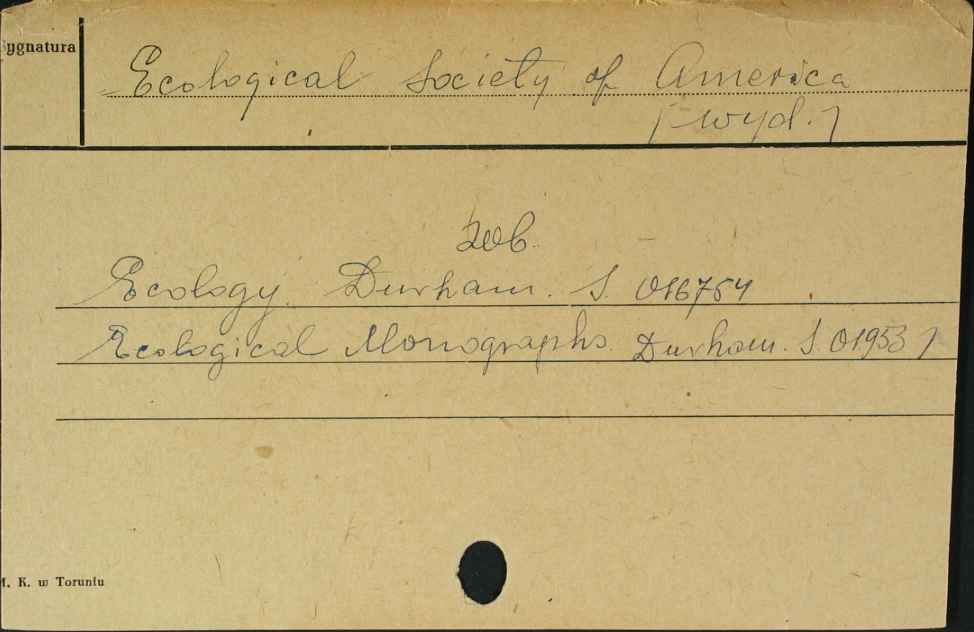 Sygnatura
Ecological Society of America
/ wyd. /
zob.
Ecology. Durham. S. 016754
Ecological Monographs. Durham. S. 01953 /
M. K. w Toruniu